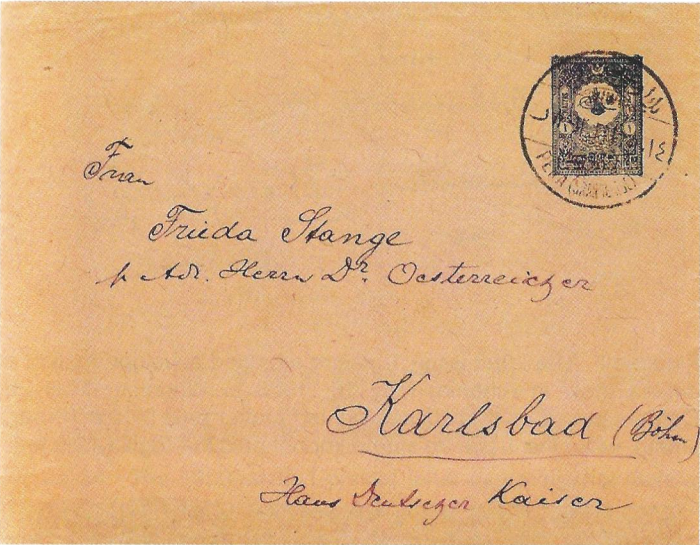 ١ 1
١٤
PERA
Frau
Frieda Stange
p. Adr. Herrn Dr. Oesterreicher
Karlsbad (Böhm)
Haus Deutscher Kaiser